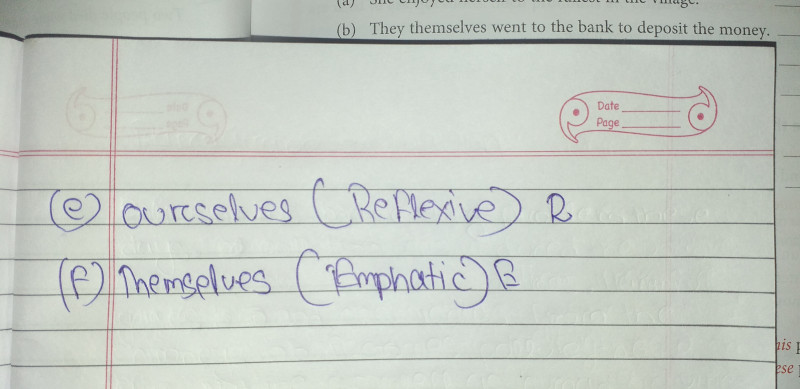 (a) She enjoyed herself to the fullest in the village.
(b) They themselves went to the bank to deposit the money.
Date
Page
(e) ourselves (Reflexive) R
(f) Themselves (Emphatic) E
his
ese